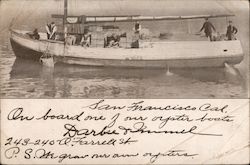 San Francisco Cal.
On board one of our oyster boats
Darbee & Immel
243-245 O'Farrell St
P.S. We grow our own oysters